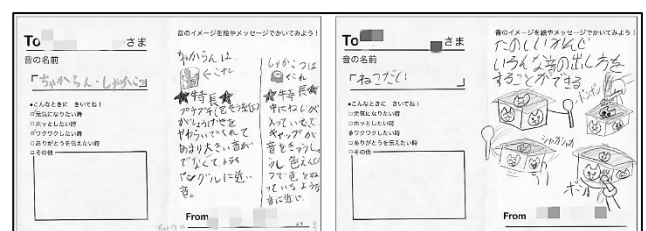 To さま
音の名前
「ちゃからん・しゃかこつ」
●こんなときに きいてね!
□元気になりたい時
□ホッとしたい時
□ワクワクしたい時
□ありがとうを伝えたい時
□その他
音のイメージを絵やメッセージでかいてみよう!
ちゃからんは
←これ
★特長★
やわらいでくれて
あまり大きい音が
でなくてトライ
アングルに近い
音。
しゃかこつは
これ
★特長★
中にねじが
入っていて
キャップが
音をきゅうしゅう
し色えんぴ
つで色をぬ
っているような
音に近い
From
To さま
音の名前
「ねこだい」
●こんなときに きいてね!
□元気になりたい時
□ホッとしたい時
ワクワクしたい時
□ありがとうを伝えたい時
□その他
音のイメージを絵やメッセージでかいてみよう!
たのしいかんじ
いろんな音の出し方を
することができる
ポンポン
シャカシャカ
From